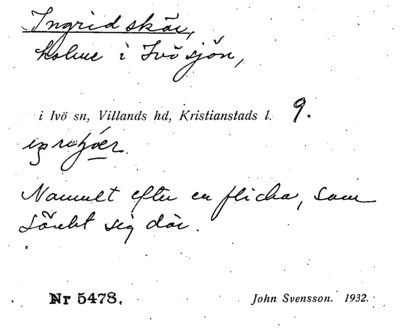 Ingridskär,
holme i Ivösjön,
i Ivö sn, Villands hd, Kristianstads l. 9.
Namnet efter en flicka, som
dränkt sig där.
Nr 5478. John Svensson. 1932.